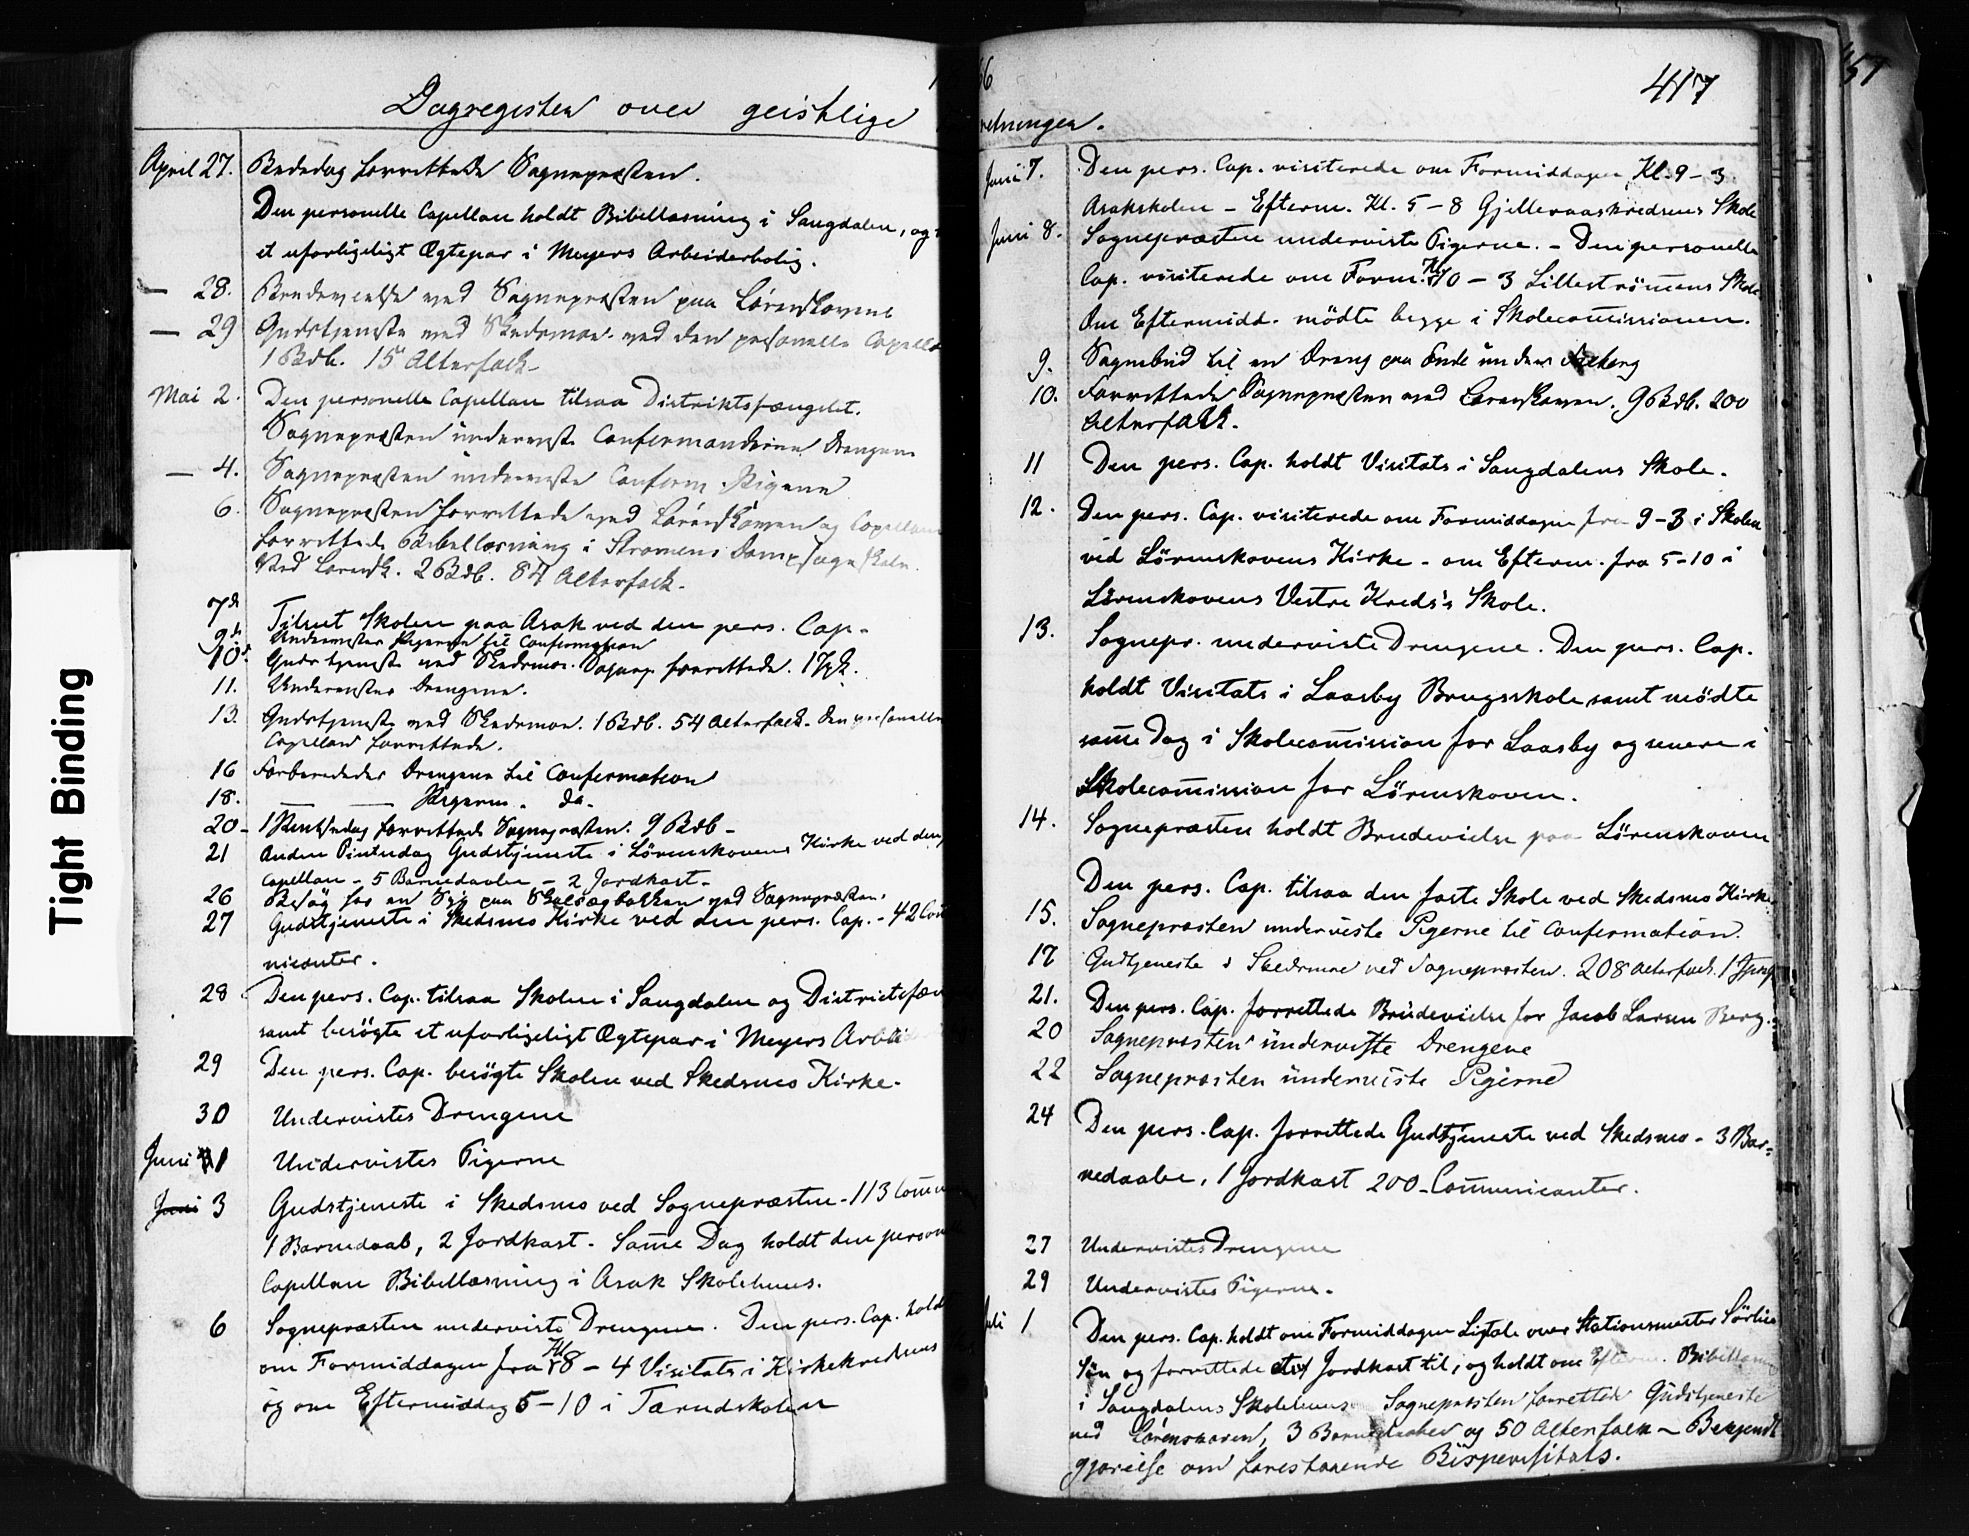 Dagregister over geistlige
April 27. Bededag forrettede Sognepræsten.
Den personelle Capellan holdt Bibellæsning i Saugdalen, og
et uforligeligt Ægtepar i Meyers Arbeiderbolig.
— 28. Brudevielse ved Sognepræsten paa Lørenskoven
— 29 Gudstjeneste ved Skedsmoe ved den personelle Capell
1 Bdb. 15 Alterfolk
Mai 2. Den personelle Capellan tilsaa Distriktsfængslet.
Sognepræsten underviste Confirmanderne Drengene
— 4. Sognepræsten underviste Confirm. Pigerne
6. Sognepræsten forrettede ved Lørenskoven og Capellan
forrettede Bibellæsning i Strømens Dampsags skole.
Ved Lørensk. 2 Bdb. 84 Alterfolk.
7de Tilseet Skolen paa Asak ved den pers. Cap.
9de Undervistes Pigerne til Confirmation
10de Gudstjeneste ved Skedsmoe. Sognep. forrettede. 1 Jdk.
11. Undervistes Drengene.
13. Gudstjeneste ved Skedsmoe. 1 Bdb. 54 Alterfolk. Den personelle
Capellan forrettede.
16 Forberededes Drengene til Confirmation
18. — — Pigerne. do.
20 - 1 Pintsedag forrettede Sognepræsten. 9 Bdb -
21 Anden Pintsedag Gudstjeneste i Lörenskovens Kirke ved den
Capellan - 5 Barnedaaber - 2 Jordkast -
26 Besøg hos en Syg paa ved Sognepræsten.
27 Gudstjeneste i Skedsmo Kirke ved den pers. Cap. - 42 Com
nicanter.
28. Den pers. Cap. tilsaa Skolen i Saugdalen og Districtsfæn
samt besögte et uforligeligt Ægtepar i Meyers Arbeid
29 Den pers. Cap. besögte Skolen ved Skedsmo Kirke.
30 Undervistes Drengene
Juni 1 Undervistes Pigerne
Juni 3 Gudstjeneste i Skedsmo ved Sognepræsten - 113 Comm
1 Barnedaab, 2 Jordkast. Same Dag holdt den person
Capellan Bibellæsning i Asak Skolehuus.
6 Sognepræsten underviste Drengene. Den pers. Cap. hold
om Formiddagen fra Kl 8 - 4 Visitats i Kirkekredsens
og om Eftermiddag 5 - 10 i Tærudskolen
66
417
retninger.
Juni 7. Den pers. Cap. visiterede om Formiddagen Kl. 9 - 3
Asakskolen - Efterm. Kl. 5 - 8 Gjelleraaskredsens Skole
Juni 8. Sognepræsten underviste Pigerne. - Den personelle
Cap. visiterede om Form. Kl 10 - 3 Lilleströmens Skole
Om Eftermidd. mödte begge i Skolecomissionen.
9. Sognebud til en Dreng paa Ende under
10. Forrettede Sognepræsten ved Lørenskoven. 9 Bdb. 200
Alterfolk.
11 Den pers. Cap. holdt Visitats i Saugdalens Skole.
12. Den pers. Cap. visiterede om Formiddagen fra 9 - 3 i Skolen
ved Lörenskovens Kirke - om Efterm. fra 5 - 10 i
Lörenskovens Vestre Kreds's Skole.
13. Sognepr. underviste Drengene. Den pers. Cap.
holdt Visitats i Laasby Brugsskole samt mödte
same Dag i Skolecomission for Laasby og senere i
Skolecomission for Lörenskoven.
14. Sognepræsten holdt Brudevielse paa Lörenskoven
Den pers. Cap. tilsaa den faste Skole ved Skedsmo Kirke
15. Sognepræsten underviste Pigerne til Confirmation.
17 Gudtjeneste i Skedsmoe ved Sognepræsten. 208 Alterfolk. 1
21. Den pers. Cap. forrettede Brudevielse for Jacob Larsen Berg.
20 Sognepræsten underviste Drengene
22 Sognepræsten underviste Pigerne
24 Den pers. Cap. forrettede Gudstjeneste ved Skedsmo - 3 Bar-
nedaabe, 1 Jordkast 200 Comunicanter.
27 Undervistes Drengene
29 Undervistes Pigerne.
Juli 1 Den pers. Cap. holdt om Formiddagen Ligtale over Stationsmester Sörlies
Sön og forrettede Jordkast til, og holdt om Efterm. Bibellæsn
i Saugdalens Skolehuus. Sognepræsten forrettede Gudstjeneste
ved Lørenskoven, 3 Barnedaaber og 50 Alterfolk - Bekjendt
gjørelse om forestaaende Bispevisitats.
Tight Binding